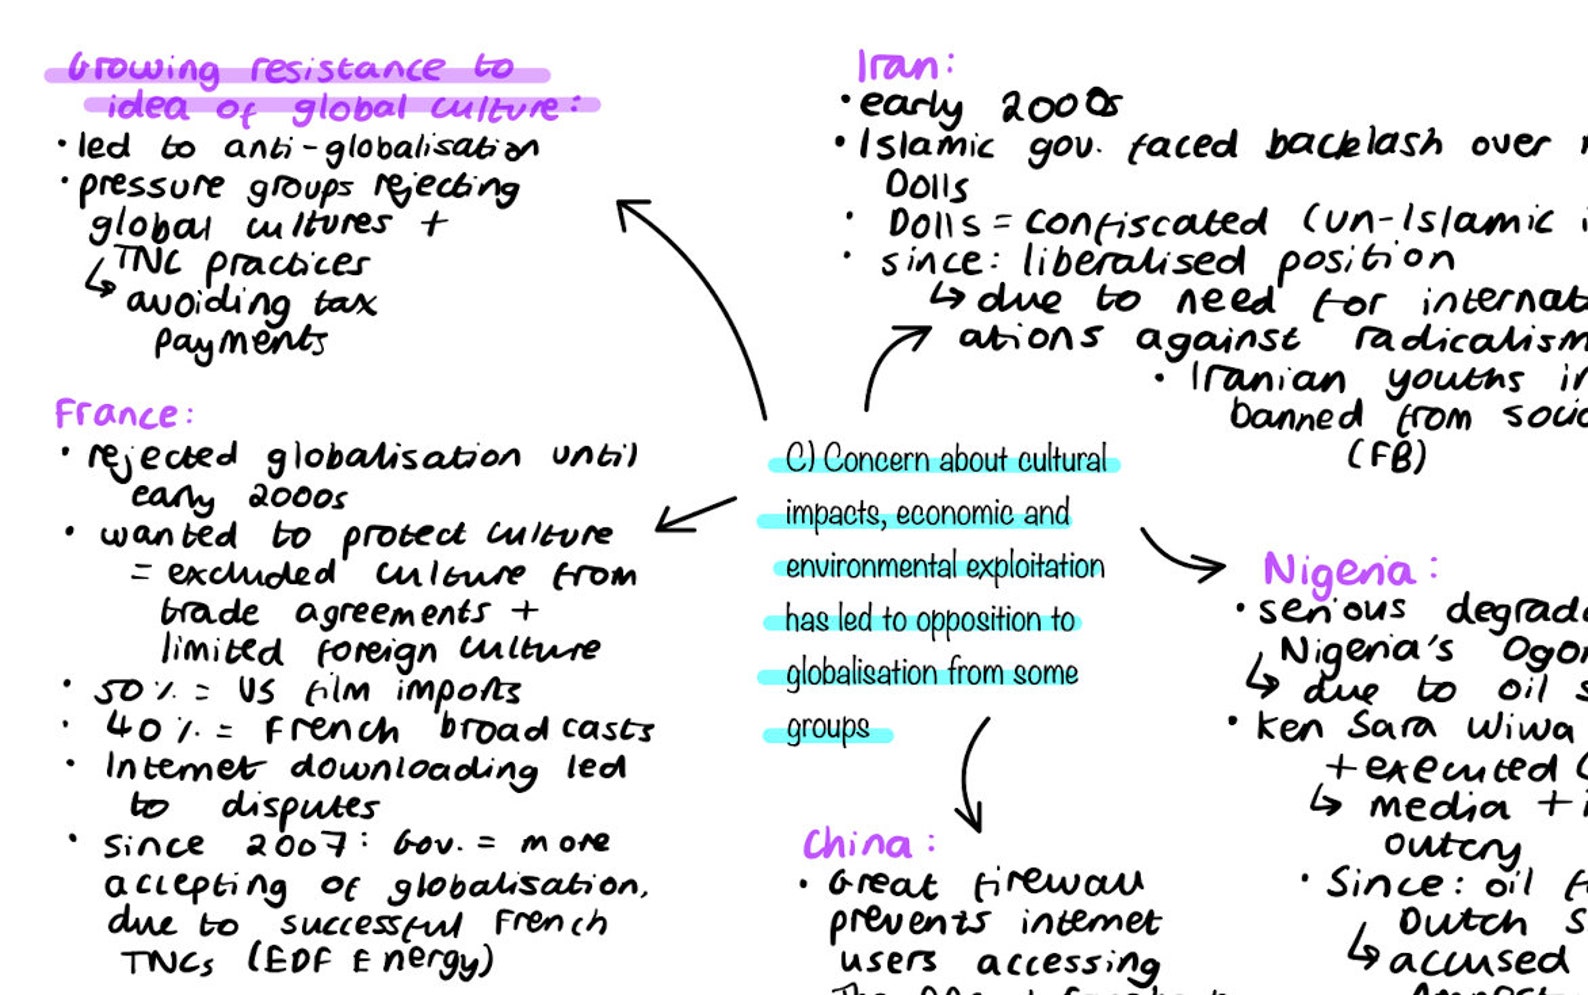 Growing resistance to
idea of global culture:
• led to anti-globalisation
• pressure groups rejecting
global cultures +
TNC practices
↳ avoiding tax
payments
France:
• rejected globalisation until
early 2000s
• wanted to protect culture
= excluded culture from
trade agreements +
limited foreign culture
• 50% = US film imports
• 40% = French broadcasts
• Internet downloading led
to disputes
• since 2007: Gov. = more
accepting of globalisation,
due to successful French
TNCs (EDF Energy)
C) Concern about cultural
impacts, economic and
environmental exploitation
has led to opposition to
globalisation from some
groups
Iran:
• early 2000s
• Islamic gov. faced backlash over
Dolls
• Dolls = confiscated (un-Islamic
• since: liberalised position
↳ due to need for internat
ations against radicalism
• Iranian youths
banned from
(FB)
Nigeria:
• serious
Nigeria's
↳ due to oil
• Ken Sara Wiwa
+ executed
↳ media +
outcry
• Since: oil
Dutch
↳ accused
China:
• Great firewall
prevents internet
users accessing